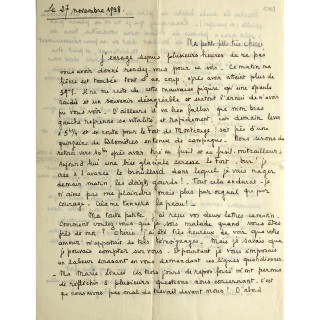 Le 27 novembre 1938.
Ma petite fille très chérie
J'enrage depuis plusieurs heures de ne pas
vous avoir donné rendez-vous pour ce soir. Ce matin ma
fièvre est tombée tout d'un coup, après avoir atteint plus de
39°5. Il ne me reste de cette mauvaise piqûre qu'une épaule
raide et un souvenir désagréable et surtout l'ennui de n'avoir
pu vous voir. D'ailleurs il va bien falloir que mon bras
gauche reprenne sa vitalité et rapidement, car demain lever
à 5h½ et en route pour le Fort de Montrouge soit près d'une
quinzaine de kilomètres en tenue de campagne. Nous serons de
retour vers 16h après avoir tiré au fusil et au fusil-mitrailleur.
Aujourd'hui une bise glaciale secoue le Fort. Brr! je
vois à l'avance le brouillard dans lequel je vais nager
demain matin, les doigts gourds!.. Tout cela endurcit - je
n'aime pas me plaindre mais plus par orgueil que par
courage. Cela me tannera la peau!
Ma toute petite, j'ai reçu vos deux lettres
Comment voulez-vous que je sois malade quand vous êtes
près de moi? Chérie! j'ai été très heureux de voir que votre
amour m'apportait de tels témoignages. Mais je savais que
je pouvais compter sur vous. Et pourtant je vous imposais
un labeur lassant en vous demandant ces lignes quotidiennes.
Ma Marie-Louise ces trois jours de repos forcé m'ont permis
de réfléchir à plusieurs questions nous concernant. C'est
que nous avons pas mal de travail devant nous! D'abord